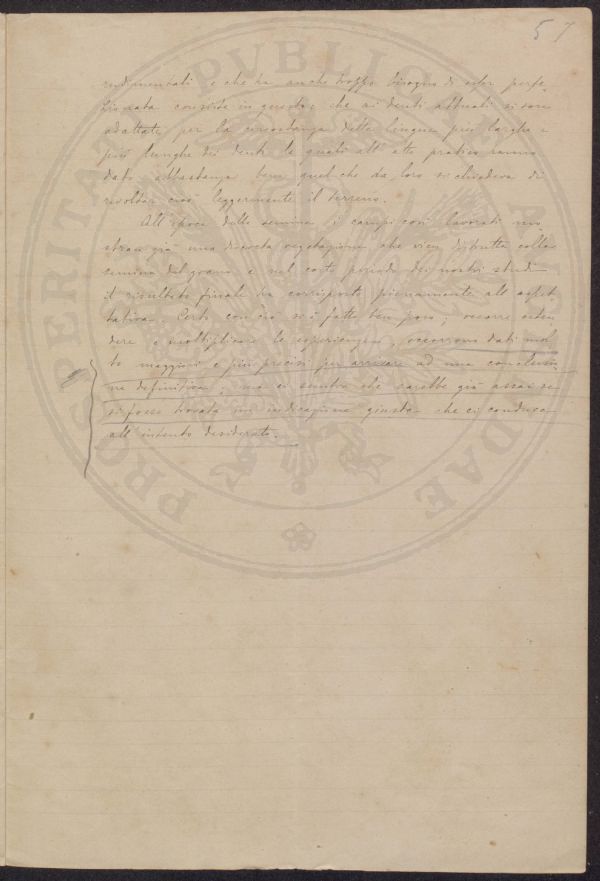 57
rudimentali e che ha anche troppo bisogno di esser perfe-
zionata consiste in questo: che ai denti attuali si sono
adattate per la circostanza delle lingue più larghe e
più lunghe dei denti le quali all'atto pratico hanno
dato abbastanza bene quel che da loro si chiedeva di
rivoltar cioè leggermente il terreno.
All'epoca della semina i campi così lavorati mo-
stran già una discreta vegetazione che vien distrutta colla
semina del grano e nel corto periodo dei nostri studi
il risultato finale ha corrisposto pienamente all'aspet-
tativa. Certo con ciò si è fatto ben poco; occorre esten-
dere e moltiplicare le esperienze, occorrono dati mol-
to maggiori e più precisi per arrivare ad una conclusio-
ne definitiva, ma ci sembra che sarebbe già assai se
si fosse trovata un indicazione giusta che ci conduca
all'intento desiderato.
PROSPERITATI PVBLICAE